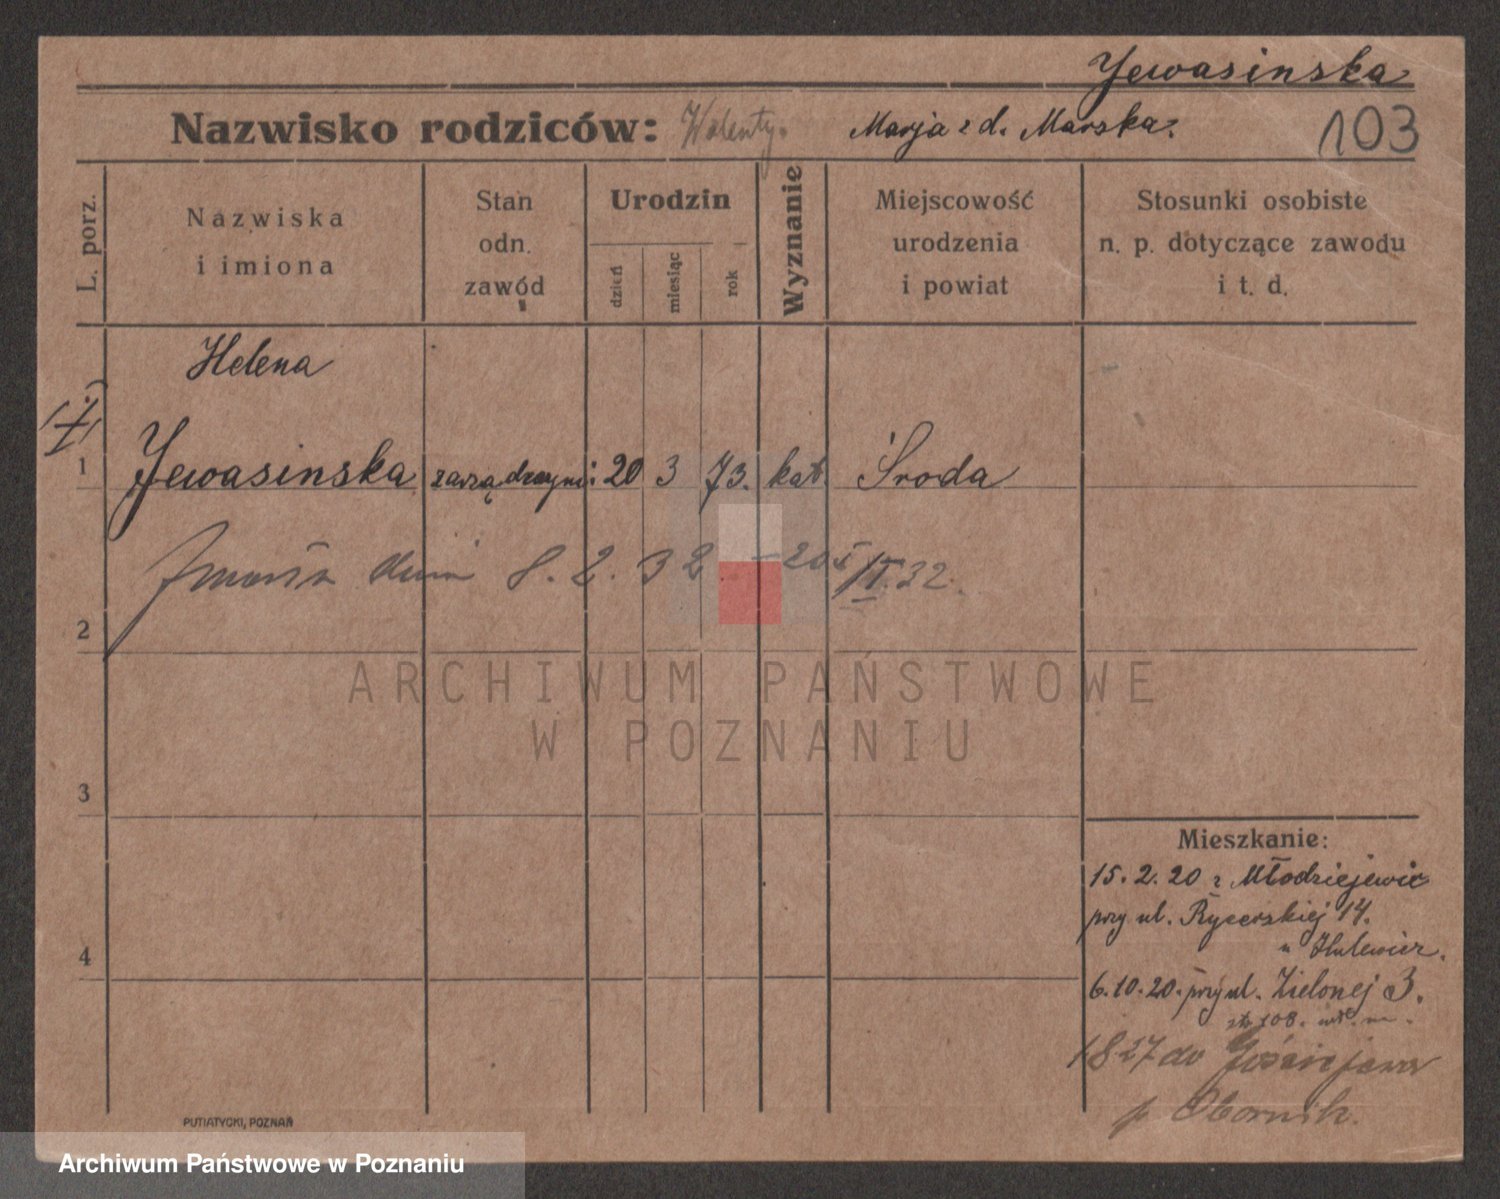 Jewasinska
Nazwisko rodziców: Walenty. Marja z d. Marska.
103
L. porz.
Nazwiska
i imiona
Stan
odn.
zawód
Urodzin
dzień
miesiąc
rok
Wyznanie
Miejscowość
urodzenia
i powiat
Stosunki osobiste
n. p. dotyczące zawodu
i t. d.
Helena
1 Jewasinska 20 3 73. kat. Środa
Zmarła dnia 8. 2. 32.
2
ARCHIWUM PAŃSTWOWE
W POZNANIU
3
Mieszkanie:
15. 2. 20 z Młodziejewic
przy ul. Rycerskiej 14.
u Hulewicz.
4
6. 10. 20. przy ul. Zielonej 3.
do
p Obornik.
PUTIATYCKI, POZNAŃ
Archiwum Państwowe w Poznaniu